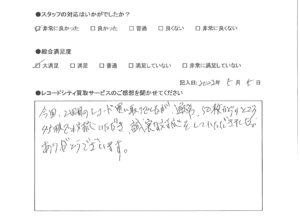 ●スタッフの対応はいかがでしたか？
☑非常に良かった □良かった □普通 □良くない □非常に良くない
●総合満足度
☑大満足 □満足 □普通 □満足していない □非常に満足していない
記入日:2023年 5月 5日
●レコードシティ買取サービスのご感想をお聞かせください
今回、2回目のレコード買い取りでしたが、通常、50枚からのところ
45枚を対応していただき 誠実な対応をしていただきました。
ありがとうございます。